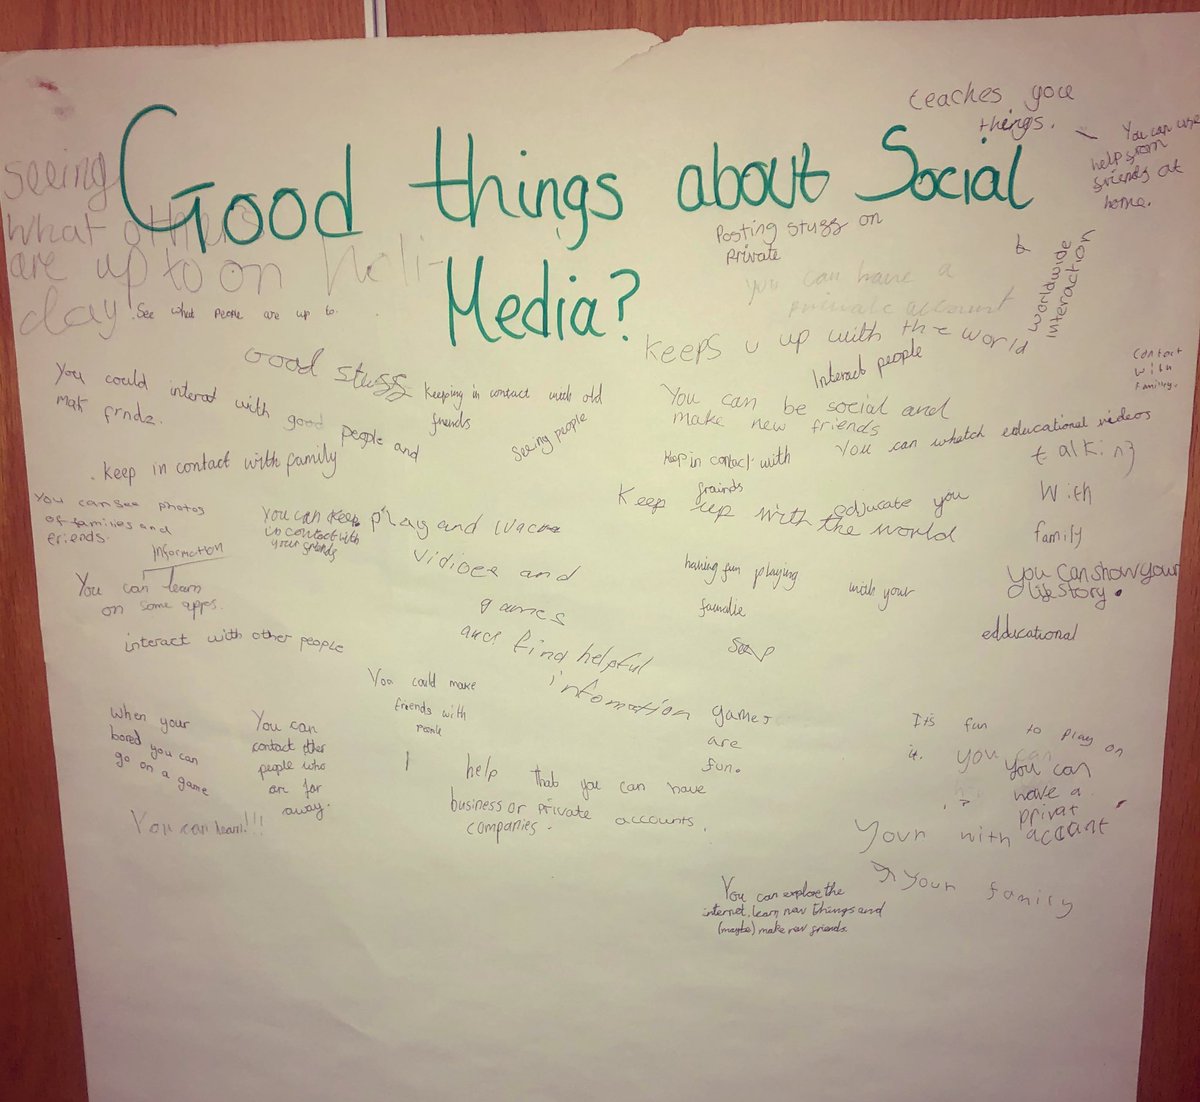 Good things about Social
Media?
teaches you
things.
You can use
help from
friends at
home.
seeing
what others
are up to on holi-
day
. See what people are up to.
Posting stuff on
Private
you can have a
private account
&
worldwide
interaction
Keeps u up with the world
Interact people
Contact
with
family.
Good stuff
You could interact with good people and
mak frndz.
Keeping in contact with old
friends
seeing people
You can be social and
make new friends
. keep in contact with family
Keep in contact with
frainds
You can whatch educational videos
talking
with
family
You can see photos
of families and
friends.
You can keep
in contact with
your friends
play and wacth
vidioes and
games
and find helpful
infomation
Keep up with the world
edjucate you
information
You can learn
on some apps.
having fun playing
with your
familie
You can show your
life story.
edducational
interact with other people
You could make
friends with
people
games
are
fun.
It's fun to play on
it.
you can
You can
have a
privat
accant
When your
bored you can
go on a game
You can
contact other
people who
are far
away.
You can learn!!!
help
that you can have
business or private accounts.
companies.
Yourn with
Your family
You can explore the
internet, learn new things and
(maybe) make new friends.